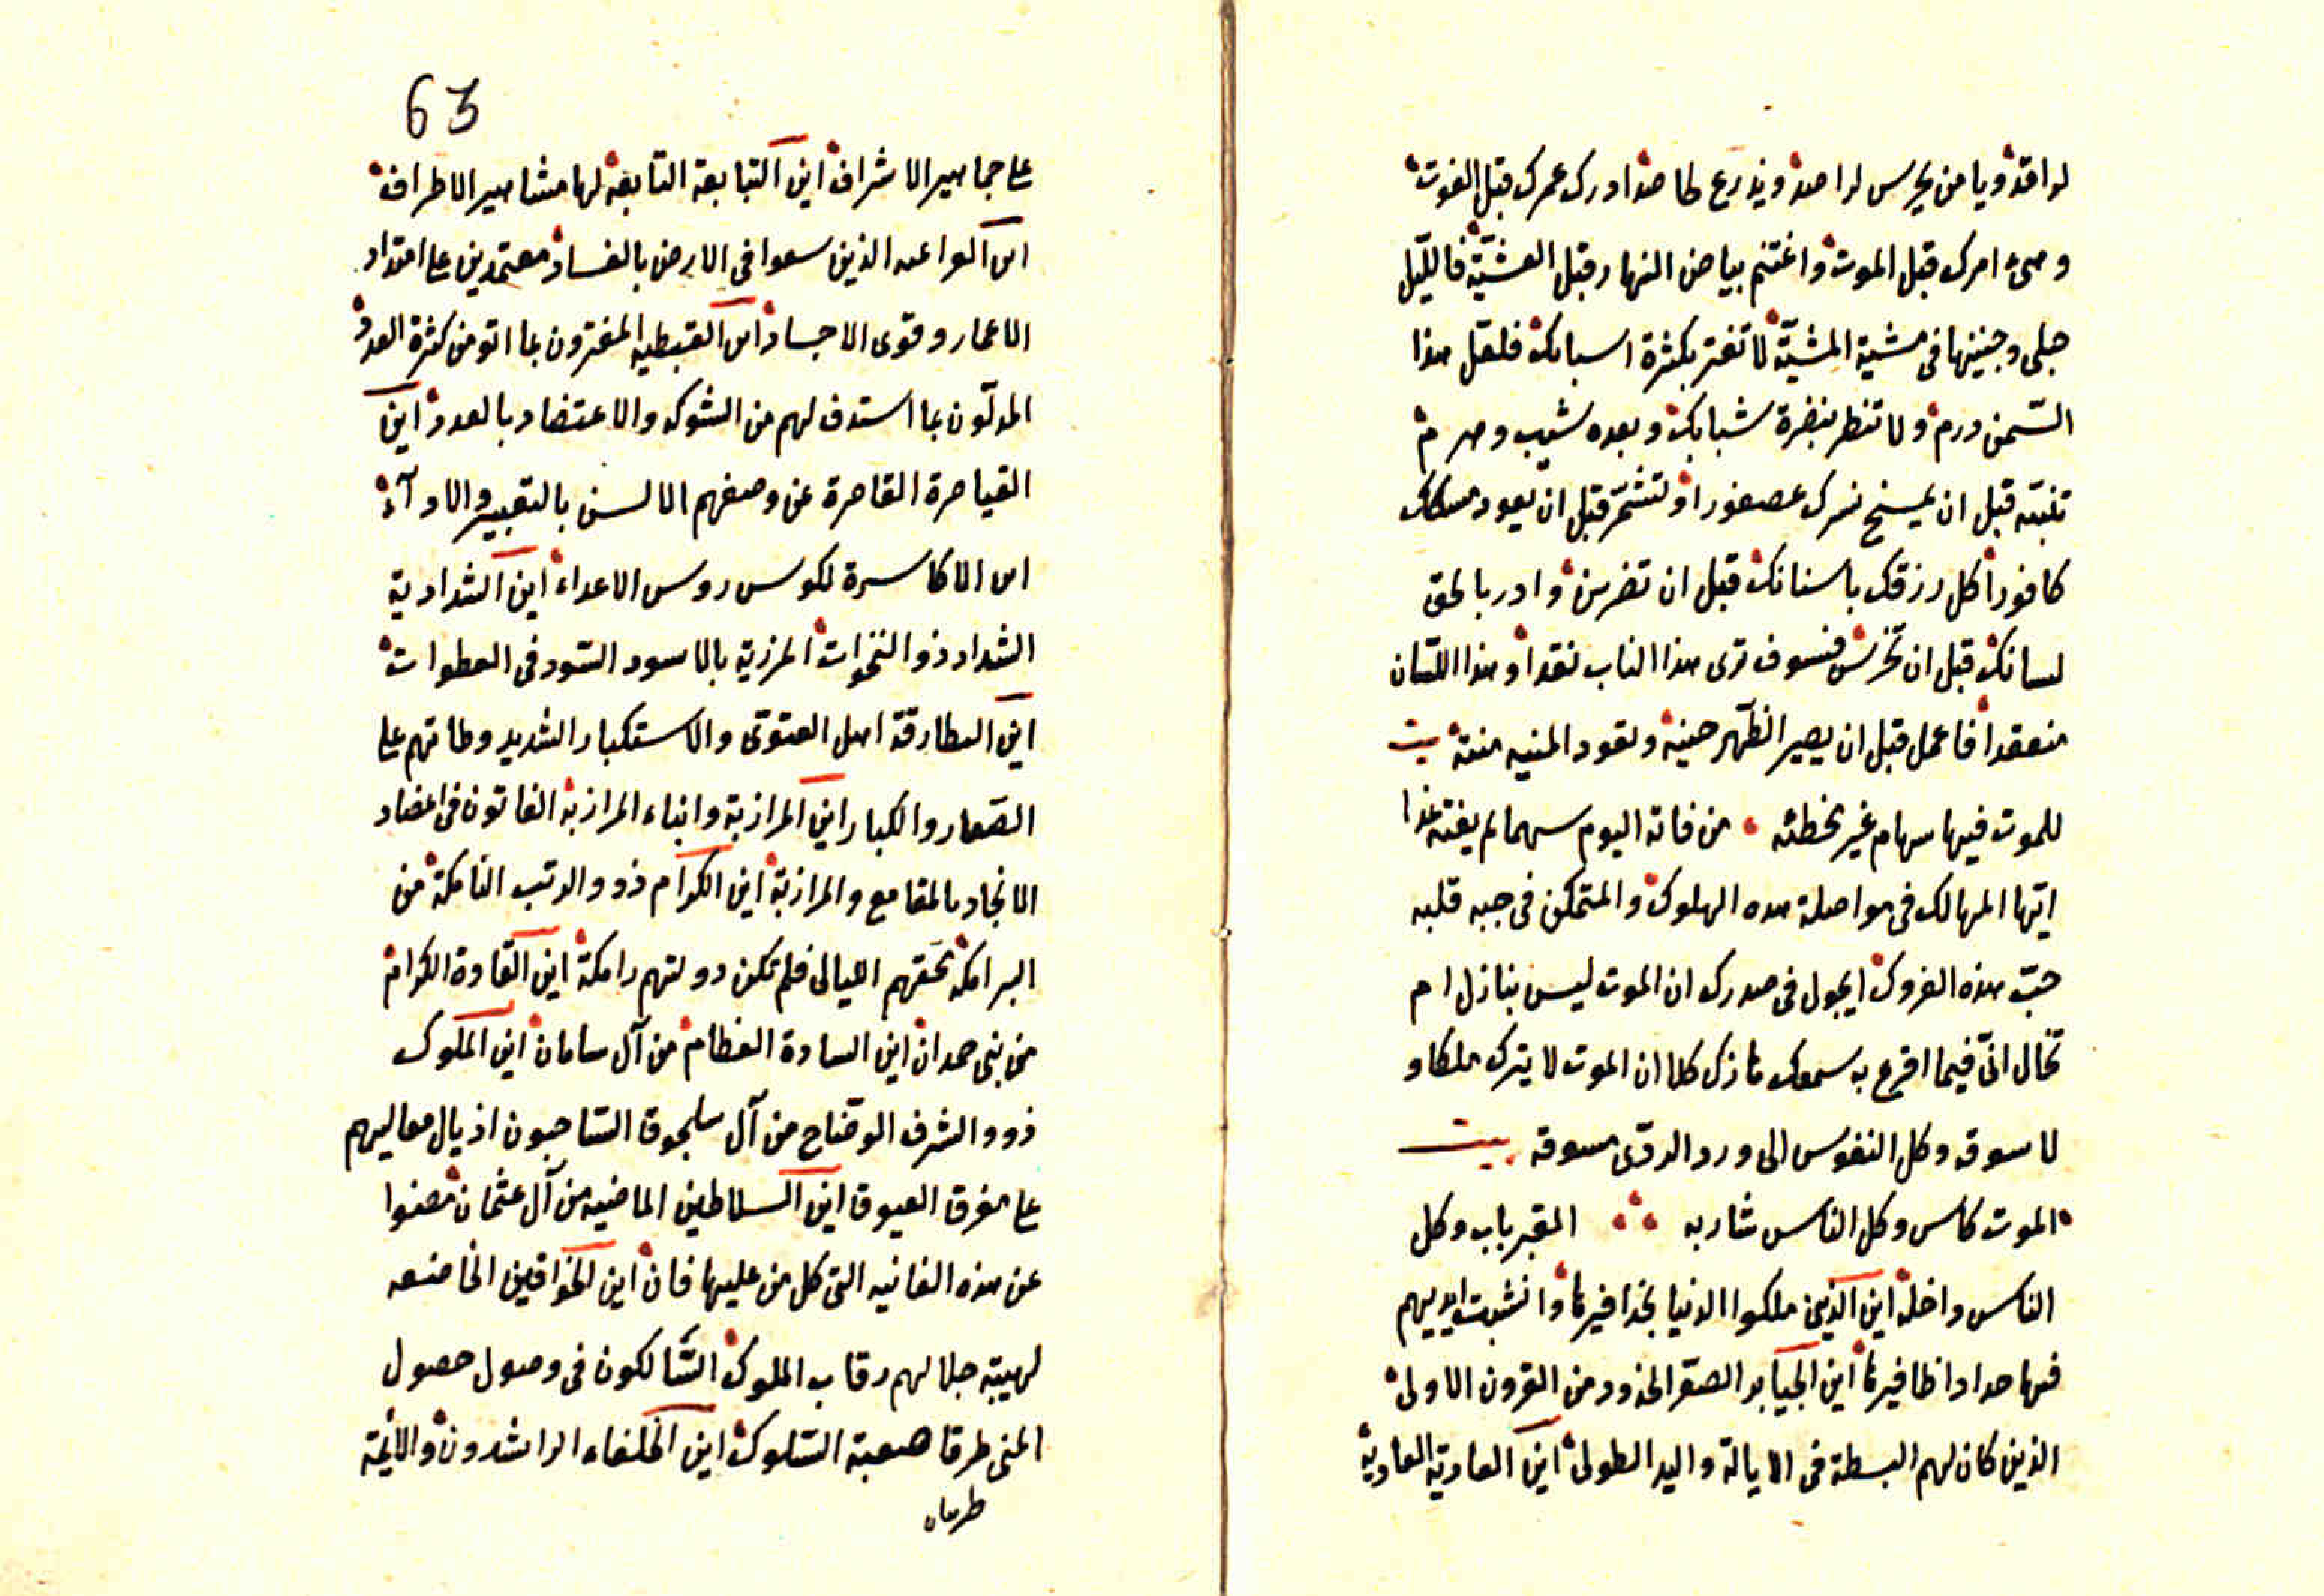 لراقد ويا من يحرس لراصد ويذرع لحاصد ادرك عمرك قبل الفوت
وهىء امرك قبل الموت واغتنم بياض النهار قبل العشية فالليل
حبلى وجنينها فى مشية المشية لا تغتر بكثرة اسبابك فلعل هذا
السمن ورم ولا تنظر بنضرة شبابك وبعده شيب وهرم
تنبه قبل ان يمسخ نسرك عصفورا ولتشمر قبل ان يعود مسكك
كافورا كل رزقك باسنانك قبل ان تضرس وادر بالحق
لسانك قبل ان تخرس فسوف ترى هذا الناب نقدا وهذا اللسان
منعقدا فاعمل قبل ان يصير الظهر حنية وتعود المنيه منية بيت
للموت فيها سهام غير مخطئه من فاته اليوم سهما لم يفته غدا
ايها المهالك فى مواصلة هذه الهلوك والمتمكن فى حبه قلبه
حب هذه الفروك ايجول فى صدرك ان الموت ليس بنازل ام
تخال انى فيما اقرع به سمعك هازل كلا ان الموت لا يترك ملكا و
لا سوقه وكل النفوس الى ورد الردى مسوقه بيت
الموت كاس وكل الناس شاربه القبر باب وكل
الناس داخله اين الذين ملكوا الدنيا بحذافيرها وانشبت ايديهم
فيها حداد اظافيرها اين الجبابر الصعر الخدود من القرون الاولى
الذين كان لهم البسطة فى الايالة واليد الطولى اين العادية العادية
63
على جماهير الاشراف اين التبابعة التابعة لها مشاهير الاطراف
اين الفراعنه الذين سعوا فى الارض بالفساد معتمدين على امتداد
الاعمار وقوى الاجساد اين القبطيه المغترون بما اتو من كثرة العدد
المدلون بما استدف لهم من الشوكه والاعتضاد بالعدد اين
القياصرة القاصرة عن وصفهم الالسن بالتعبير والاداء
اين الاكاسرة لكوس روس الاعداء اين الشدادية
الشداد ذو النخوات المزرية بالاسود السود فى السطوات
اين البطارقة اهل العتوى والاستكبار الشديد وطاتهم على
الصغار والكبار اين المرازبة وابناء المرازبة الفاتون فى اعضاد
الانجاد بالمقامع والمرازبة اين الكرام ذوو الرتب النامكة من
البرامكة نحتهم الليالى فلم تكن دولتهم رامكة اين القادة الكرام
من بنى حمدان اين السادة العظام من آل سامان اين الملوك
ذوو الشرف الوضاح من آل سلجوق الساحبون اذيال معاليهم
على مفرق العيوق اين السلاطين الماضيه من آل عثمان مضوا
عن هذه الفانيه التى كل من عليها فان اين الخواقين الخاضعه
لهيبة جلالهم رقاب الملوك السالكون فى وصول حصول
المنى طرقا صعبة السلوك اين الخلفاء الراشدون والائمة